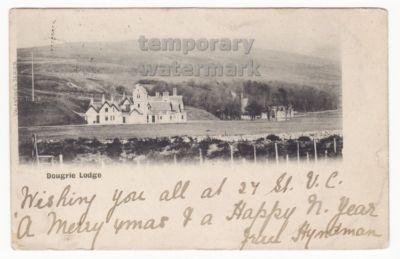 temporary
watermark
Dougrie Lodge
Wishing you all at 27 St. V. C.
A Merry xmas & a Happy N. Year
Hyndman